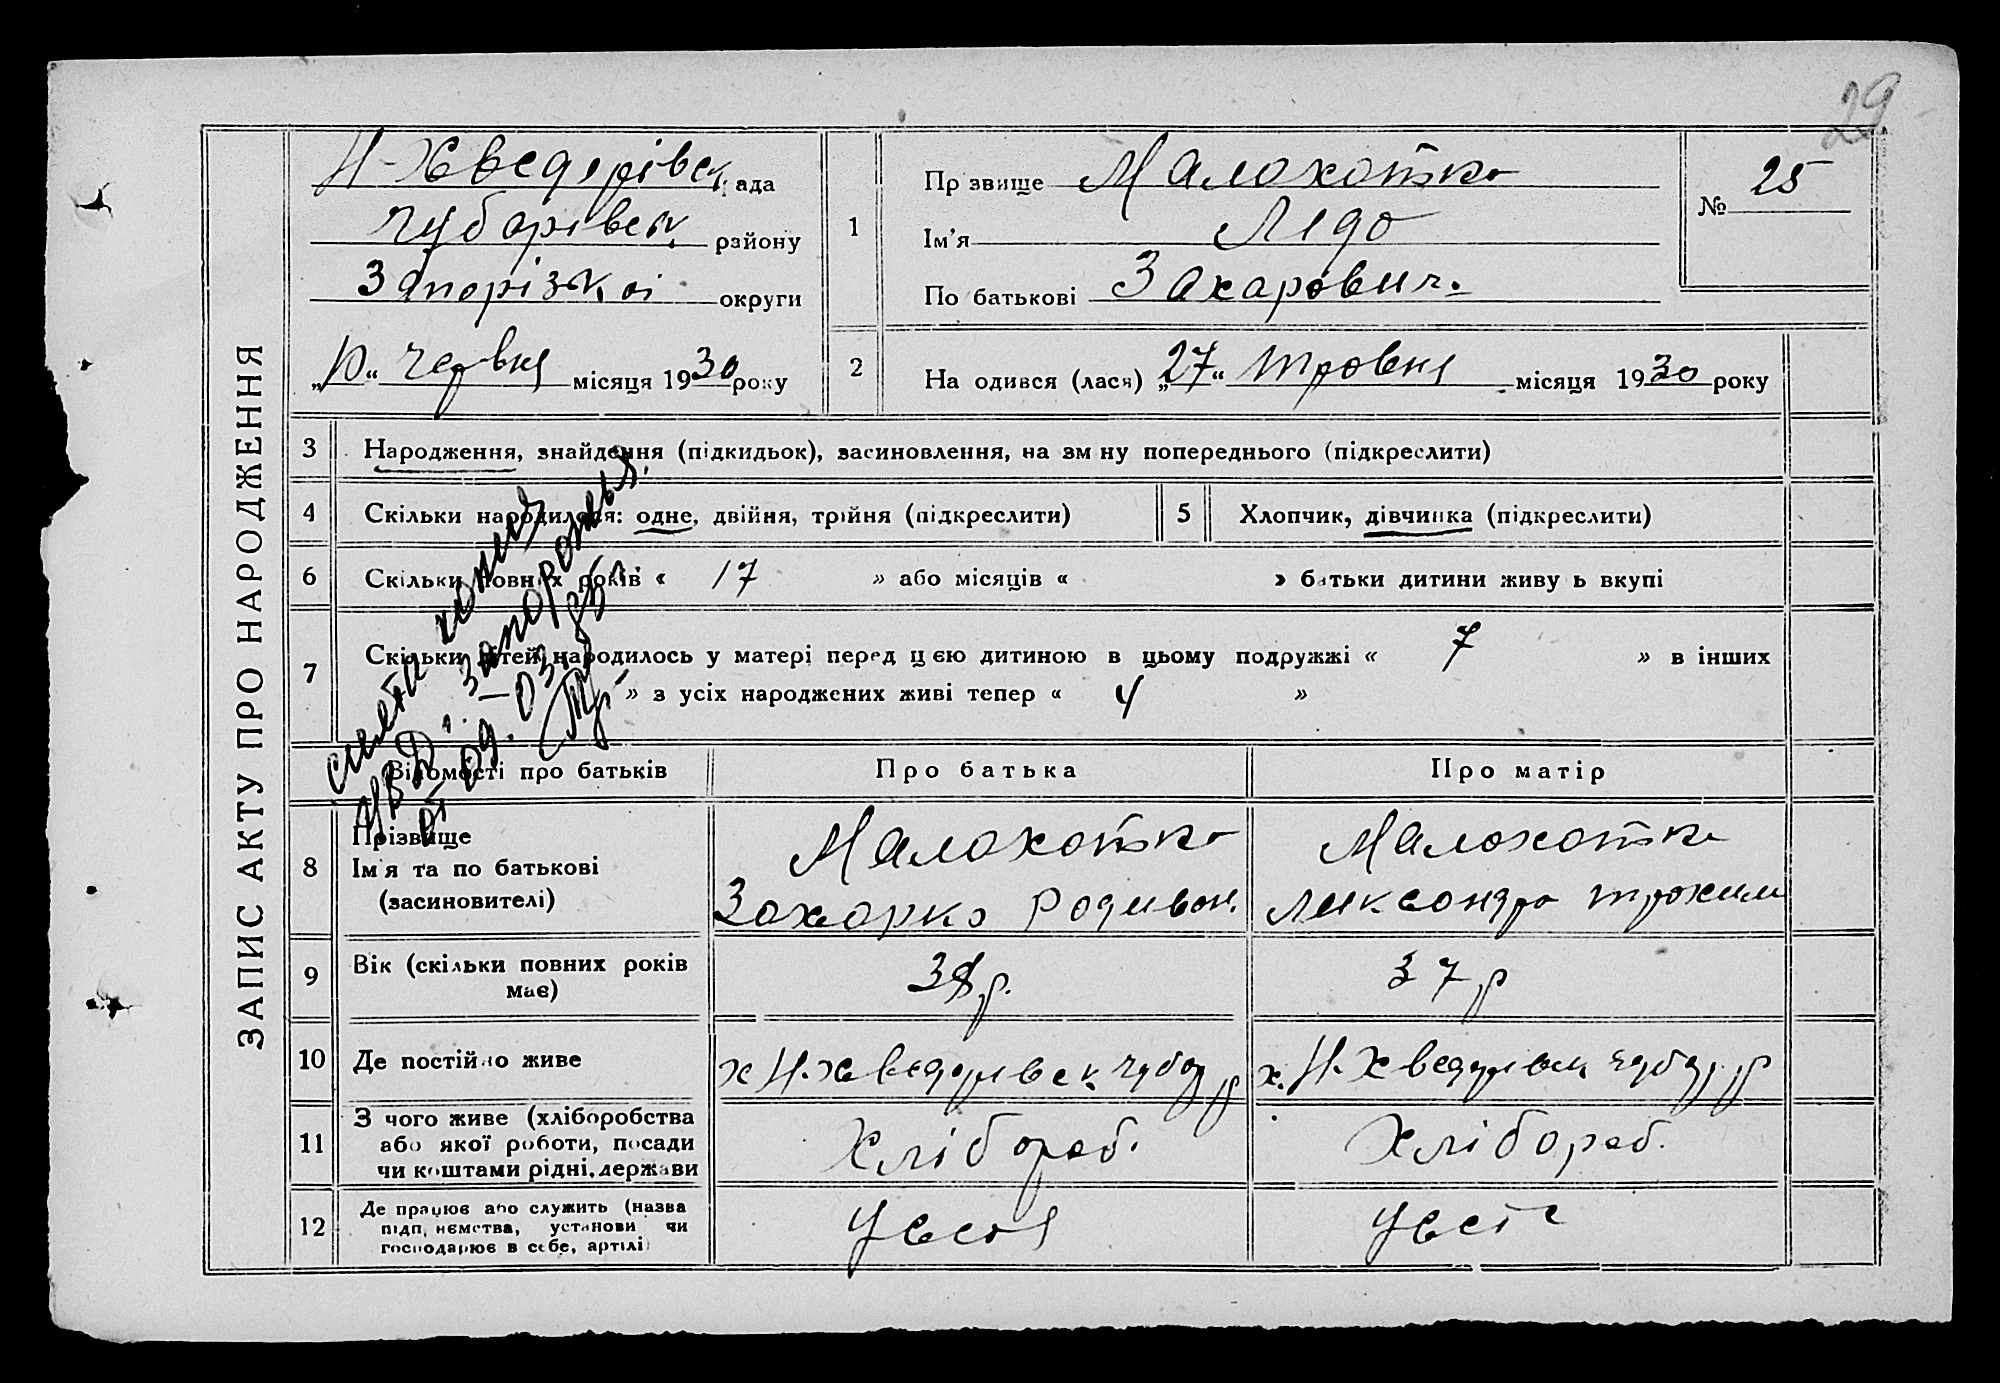 29
ЗАПИС АКТУ ПРО НАРОДЖЕННЯ
Н-Хведорівск рада
Чубарівськ району
Запорізької округи
„10“ червня місяця 1930 року
1
Прізвище Малохатка
Ім'я Лідо
По батькові Захарович.
№ 25
2
Народився (лася) „27“ тровня місяця 1930 року
3 Народження, знайдення (підкидьок), засиновлення, на зміну попереднього (підкреслити)
4 Скільки народилося: одне, двійня, трійня (підкреслити)
5 Хлопчик, дівчинка (підкреслити)
6 Скільки повних років: « 17 » або місяців « » батьки дитини живуть вкупі
7 Скільки дітей народилось у матері перед цією дитиною в цьому подружжі « 7 » в інших
» з усіх народжених живі тепер « 4 »
копия
НВД г. Запорожья
от 09.-03
Відомості про батьків Про батька Про матір
8 Прізвище
Ім'я та по батькові
(засновителі)
Малохатка
Захарко Родивон.
Малохатка
Ликсондро Трохим
9 Вік (скільки повних років
має)
38 р.
37 р
10 Де постійно живе
х Н-Хведорівск Чубар р
х. Н-Хведорівск Чубар р
11 З чого живе (хліборобства
або якої роботи, посади
чи коштами рідні, держави
Хлібороб.
Хлібороб.
12 Де працює або служить (назва
підприємства, установи чи
господарює в себе, артілі)